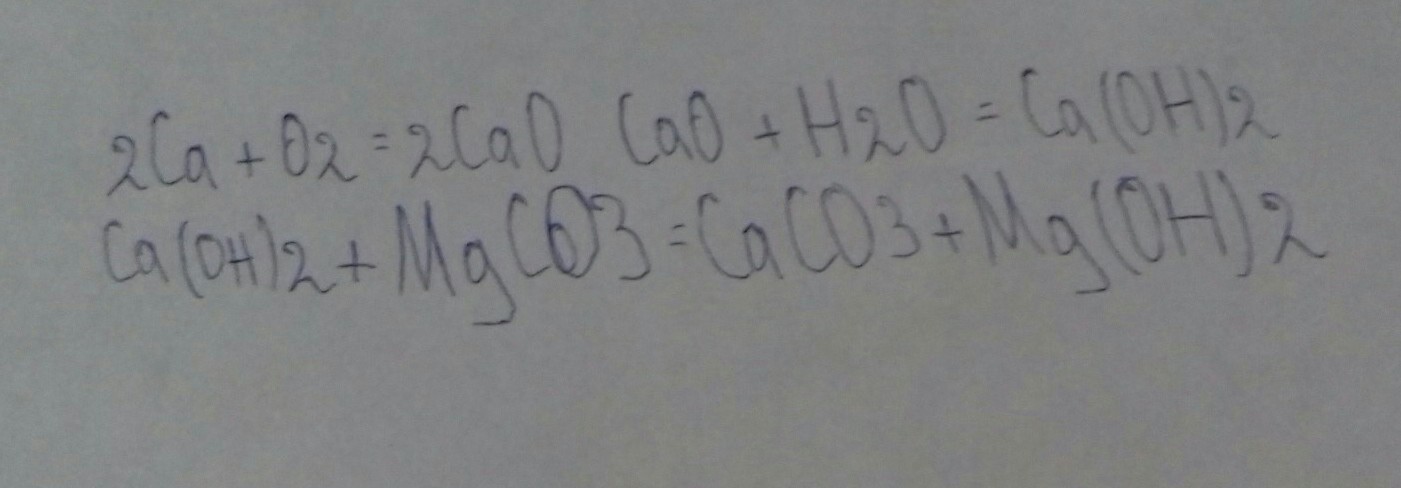 2Ca + O2 = 2CaO CaO + H2O = Ca(OH)2
Ca(OH)2 + MgCO3 = CaCO3 + Mg(OH)2